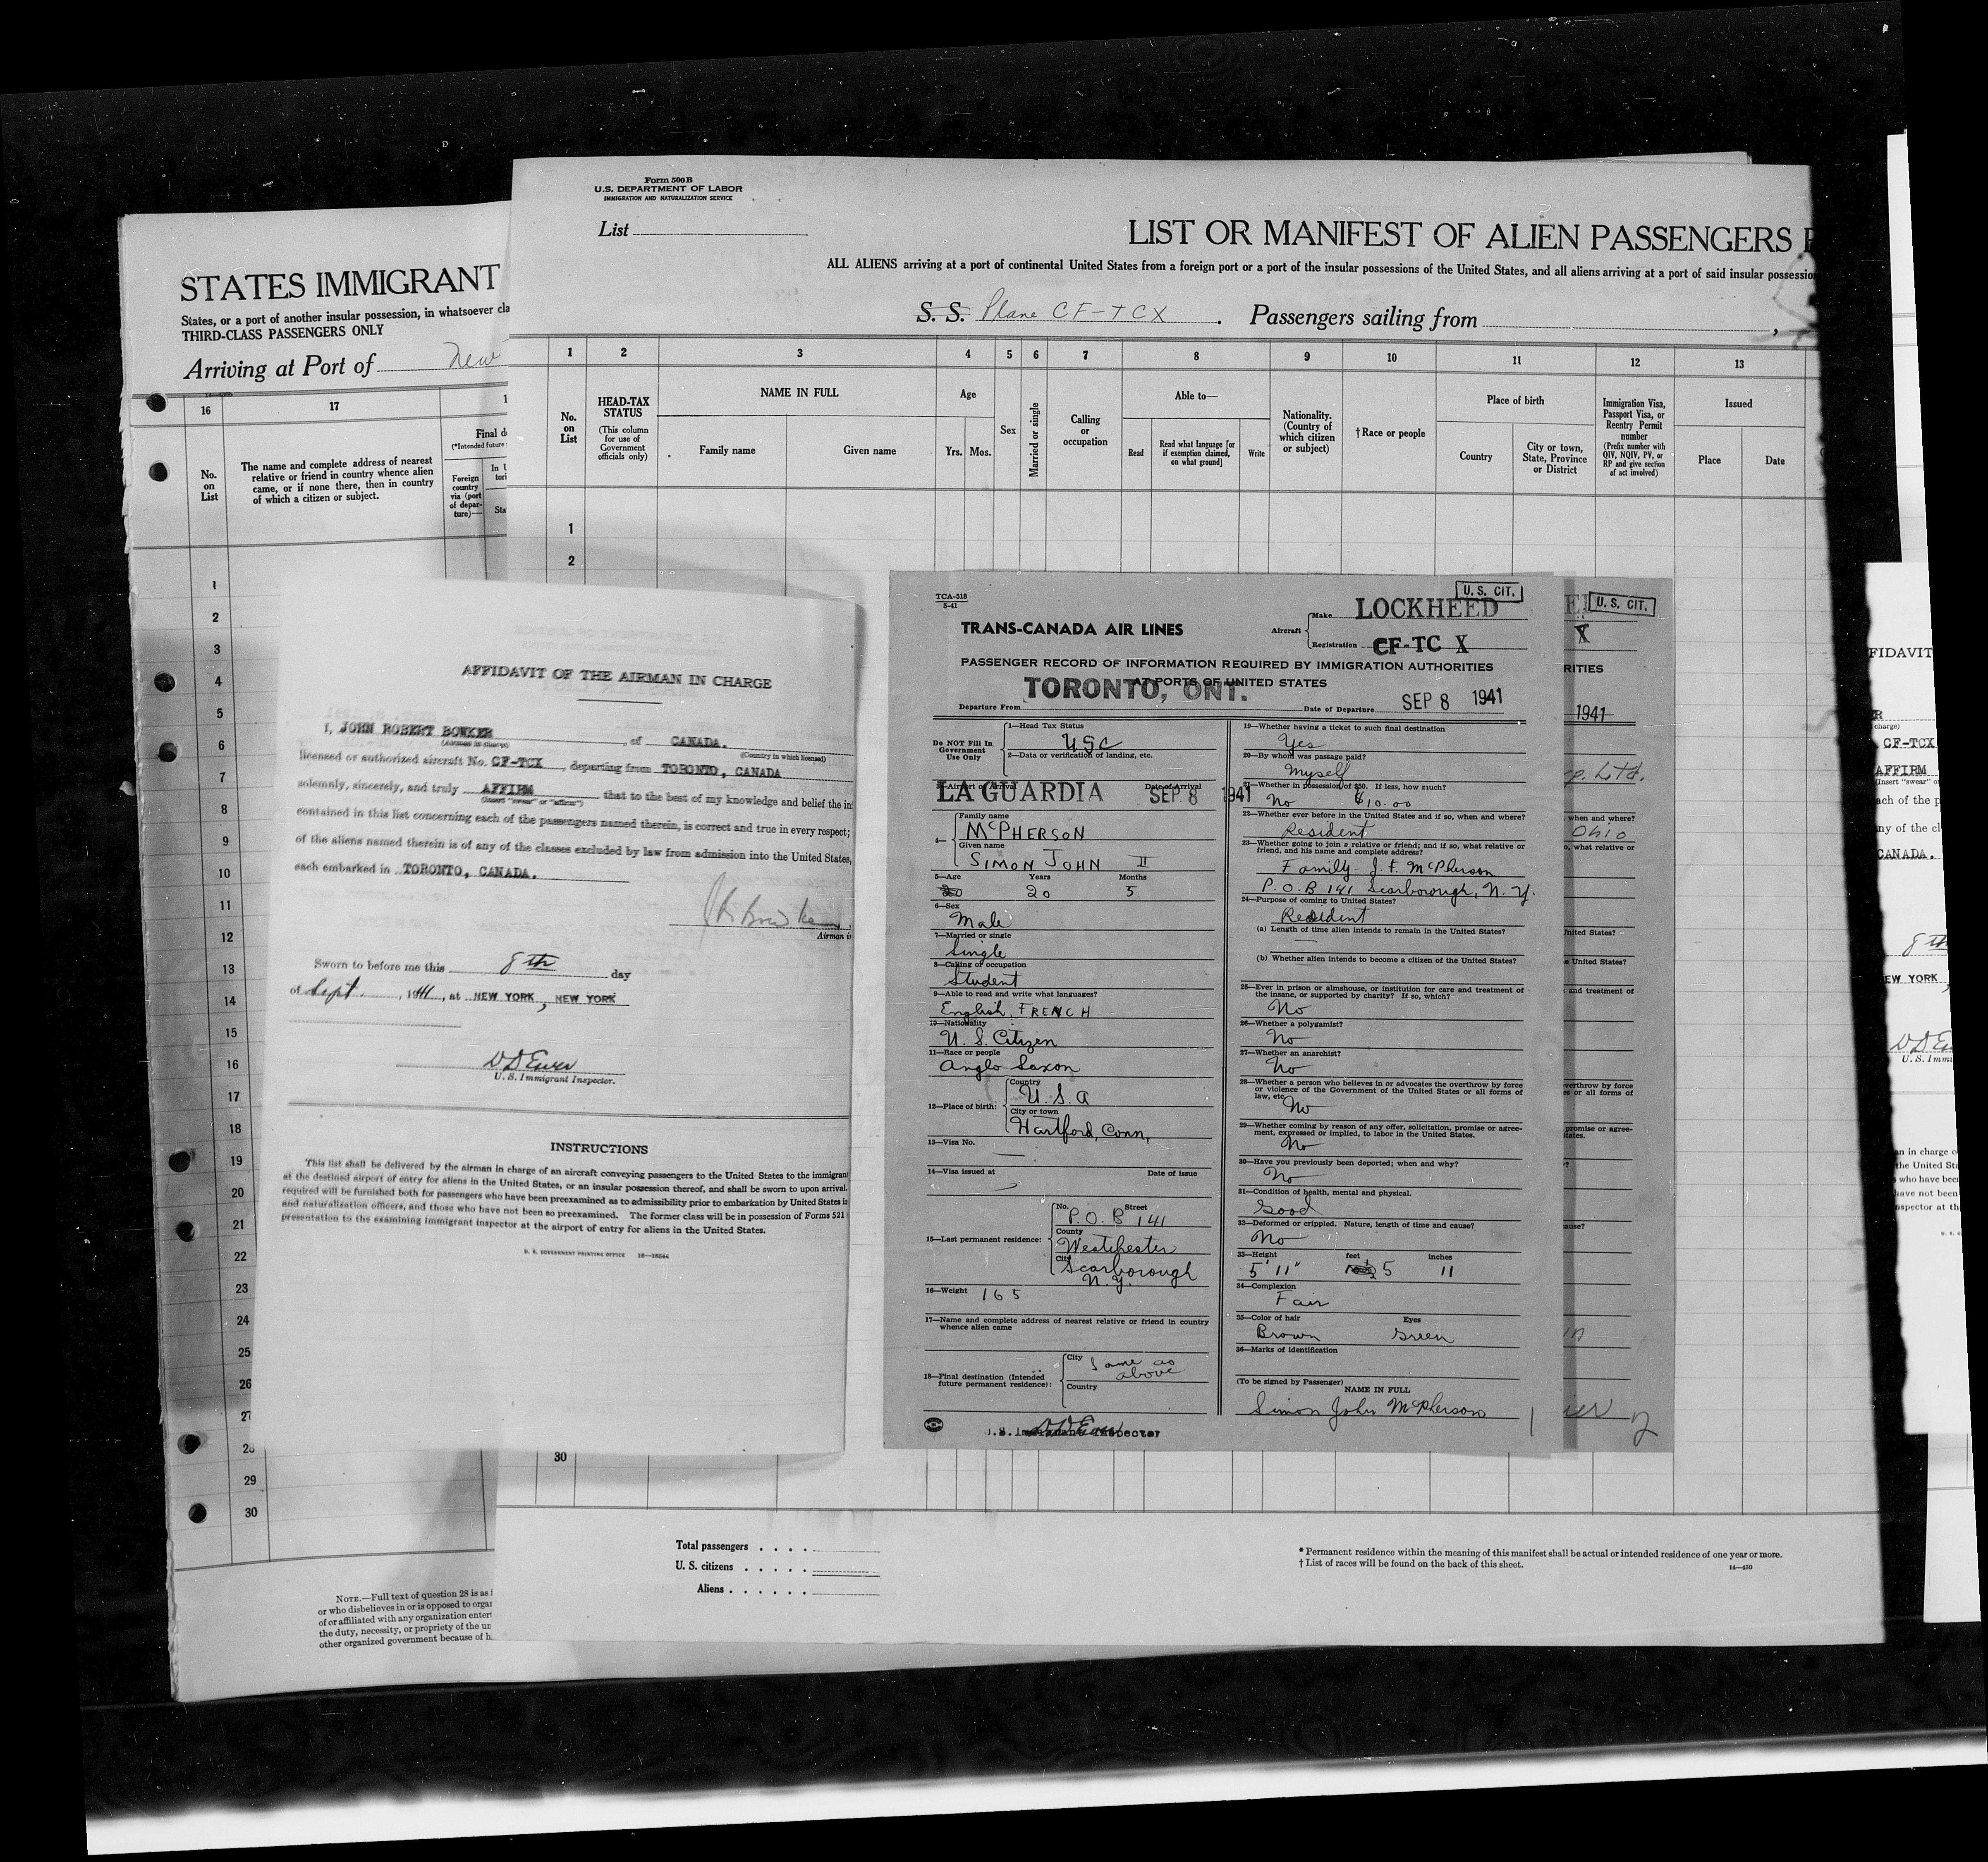 STATES IMMIGRANT
States, or a port of another insular possession, in whatsoever cla
THIRD-CLASS PASSENGERS ONLY
Arriving at Port of New
16 17
No. on List
The name and complete address of nearest
relative or friend in country whence alien
came, or if none there, then in country
of which a citizen or subject.
Final d
(*Intended future
Foreign
country
via (port
of depar-
ture)—
1
2
3
4
5
6
7
8
9
10
11
12
13
14
15
16
17
18
19
20
21
22
23
24
25
26
27
28
29
30
NOTE.—Full text of question 28 is as f
or who disbelieves in or is opposed to orga
of or affiliated with any organization entert
the duty, necessity, or propriety of the un
other organized government because of h
Form 500 B
U.S. DEPARTMENT OF LABOR
IMMIGRATION AND NATURALIZATION SERVICE
List
LIST OR MANIFEST OF ALIEN PASSENGERS F
ALL ALIENS arriving at a port of continental United States from a foreign port or a port of the insular possessions of the United States, and all aliens arriving at a port of said insular possessio
S. S. Plane CF-TCX . Passengers sailing from ,
1 2 3 4 5 6 7 8 9 10 11 12 13
No. on List
HEAD-TAX STATUS
(This column for use of Government officials only)
NAME IN FULL
Family name
Given name
Age
Yrs. Mos.
Sex
Married or single
Calling or occupation
Able to—
Read
Read what language [or if exemption claimed, on what ground]
Write
Nationality. (Country of which citizen or subject)
†Race or people
Place of birth
Country
City or town, State, Province or District
Immigration Visa, Passport Visa, or Reentry Permit number
(Prefix number with QIV, NQIV, PV, or RP and give section of act involved)
Issued
Place
Date
1
2
30
Total passengers . . . .
U. S. citizens . . . . .
Aliens . . . . . .
* Permanent residence within the meaning of this manifest shall be actual or intended residence of one year or more.
† List of races will be found on the back of this sheet.
14—430
AFFIDAVIT OF THE AIRMAN IN CHARGE
I, JOHN ROBERT BOWKER, of CANADA.
(Airman in charge) (Country in which licensed)
licensed or authorized aircraft No. CF-TCX, departing from TORONTO, CANADA
solemnly, sincerely, and truly AFFIRM that to the best of my knowledge and belief the in
(Insert "swear" or "affirm")
contained in this list concerning each of the passengers named therein, is correct and true in every respect;
of the aliens named therein is of any of the classes excluded by law from admission into the United States,
each embarked in TORONTO, CANADA.
J R Bowker
Airman i
Sworn to before me this 8th day
of Sept., 1941, at NEW YORK, NEW YORK
D D Ewer
U. S. Immigrant Inspector.
INSTRUCTIONS
This list shall be delivered by the airman in charge of an aircraft conveying passengers to the United States to the immigrant
at the destined airport of entry for aliens in the United States, or an insular possession thereof, and shall be sworn to upon arrival.
required will be furnished both for passengers who have been preexamined as to admissibility prior to embarkation by United States i
and naturalization officers, and those who have not been so preexamined. The former class will be in possession of Forms 521
presentation to the examining immigrant inspector at the airport of entry for aliens in the United States.
U. S. GOVERNMENT PRINTING OFFICE
TCA-518
5-41
U. S. CIT.
TRANS-CANADA AIR LINES
Aircraft
Make LOCKHEED
Registration CF-TC X
PASSENGER RECORD OF INFORMATION REQUIRED BY IMMIGRATION AUTHORITIES
AT PORTS OF UNITED STATES
Departure From TORONTO, ONT. Date of Departure SEP 8 1941
Do NOT Fill In
Government
Use Only
1—Head Tax Status
USC
2—Data or verification of landing, etc.
3—Airport of Arrival LA GUARDIA Date of Arrival SEP 8 1941
4— Family name
McPHERSON
Given name
SIMON JOHN II
5—Age Years Months
20 5
6—Sex
Male
7—Married or single
Single
8—Calling or occupation
Student
9—Able to read and write what languages?
English, FRENCH
10—Nationality
U. S. Citizen
11—Race or people
Anglo Saxon
12—Place of birth:
Country
U. S. A
City or town
Hartford, Conn,
13—Visa No.
—
14—Visa issued at Date of issue
15—Last permanent residence:
No. Street
P.O.B 141
County
Westchester
City
Scarborough
N.Y.
16—Weight 165
17—Name and complete address of nearest relative or friend in country
whence alien came
18—Final destination (Intended
future permanent residence):
City
Same as above
Country
D D Ewer
U.S. Immigrant Inspector
19—Whether having a ticket to such final destination
Yes
20—By whom was passage paid?
Myself
21—Whether in possession of $50. If less, how much?
No $10.00
22—Whether ever before in the United States and if so, when and where?
Resident
23—Whether going to join a relative or friend; and if so, what relative or
friend, and his name and complete address?
Family - J. F. McPherson
P.O.B 141 Scarborough, N.Y.
24—Purpose of coming to United States?
Resident
(a) Length of time alien intends to remain in the United States?
—
(b) Whether alien intends to become a citizen of the United States?
25—Ever in prison or almshouse, or institution for care and treatment of
the insane, or supported by charity? If so, which?
No
26—Whether a polygamist?
No
27—Whether an anarchist?
No
28—Whether a person who believes in or advocates the overthrow by force
or violence of the Government of the United States or all forms of
law, etc.
No
29—Whether coming by reason of any offer, solicitation, promise or agree-
ment, expressed or implied, to labor in the United States.
No
30—Have you previously been deported; when and why?
No
31—Condition of health, mental and physical.
Good
32—Deformed or crippled. Nature, length of time and cause?
No
33—Height feet inches
5' 11" 5 11
34—Complexion
Fair
35—Color of hair Eyes
Brown Green
36—Marks of identification
(To be signed by Passenger)
NAME IN FULL
Simon John McPherson
1
U. S. CIT.
X
RITIES
1941
p. Ltd.
when and where?
Ohio
o, what relative or
United States?
e United States?
and treatment of
verthrow by force
es or all forms of
promise or agree-
tates.
ause?
2
FIDAVIT
R
charge)
CF-TCX
AFFIRM
(Insert "swear" o
ach of the p
ny of the cl
CANADA.
8th
EW YORK,
D D Ew
U. S. Immi
an in charge o
the United St
who have bee
have not been
nspector at th